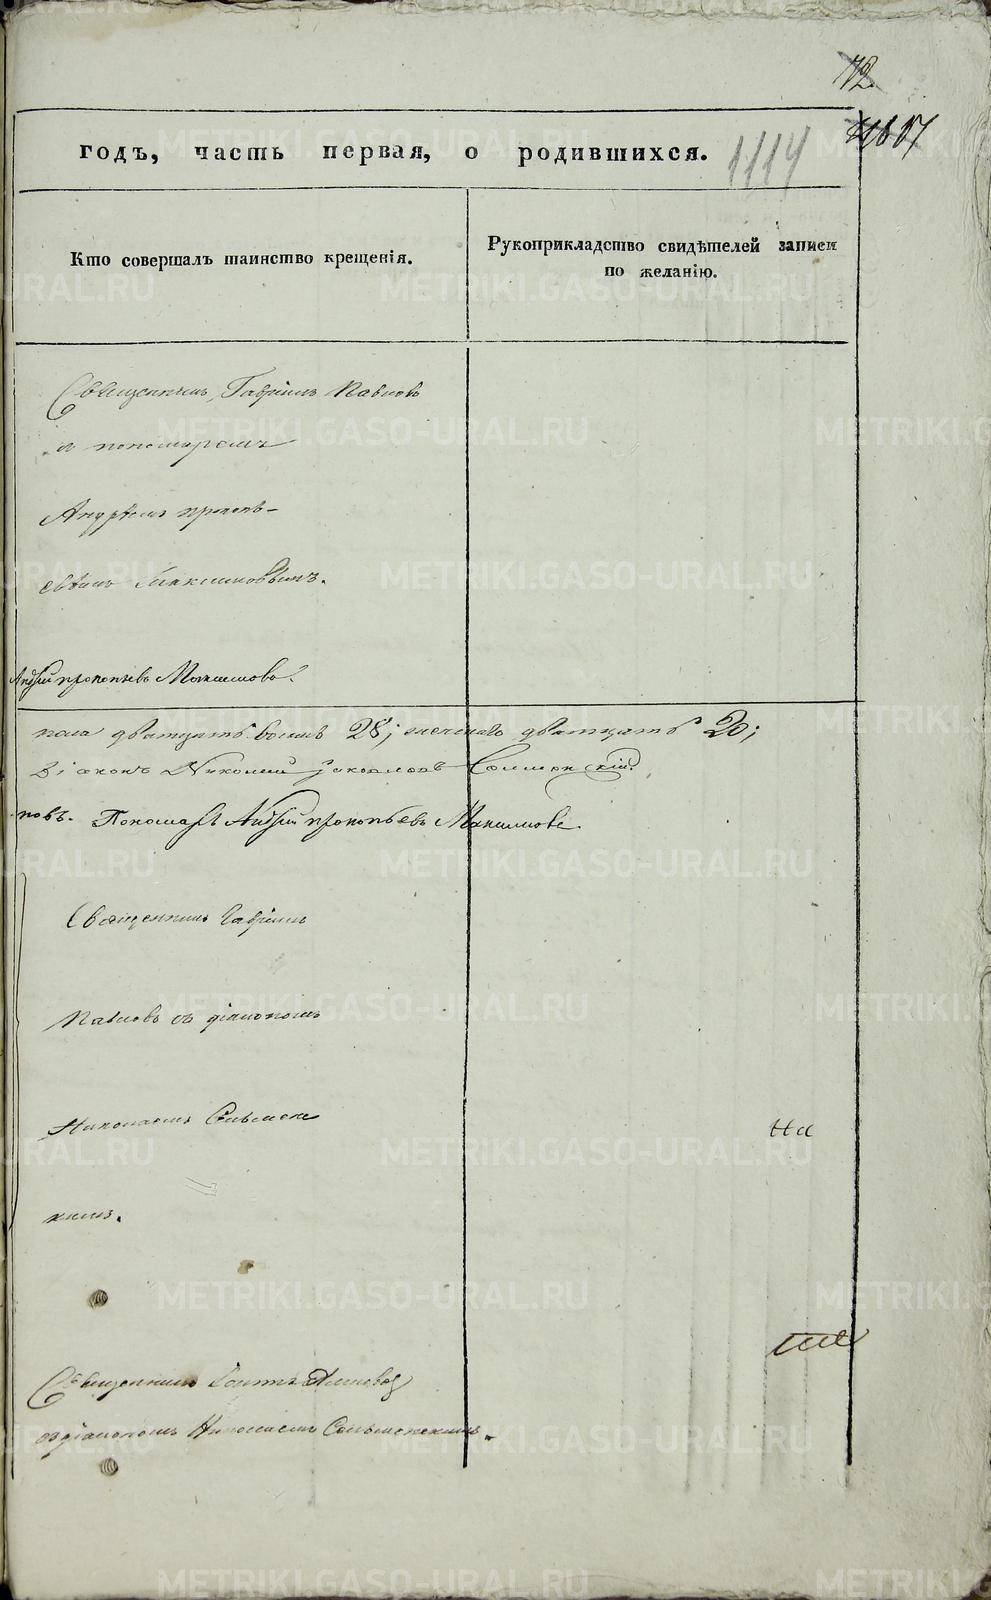 72.
1114
годъ, часть первая, о родившихся.
Кто совершалъ таинство крещенія.
Рукоприкладство свидѣтелей записи
по желанію.
Священникъ Гавріилъ Павловъ
съ пономаремъ
Андреемъ Прокопь-
евымъ Максимовымъ.
Андрей Прокопьевъ Максимовъ.
пола дватцать восемь 28; женскаго дватцать 20;
Діаконъ Николай Яковлевъ
новъ. Пономарь Андрей Прокопьевъ Максимовъ
Священникъ Гавріилъ
Павловъ съ діакономъ
Николаемъ
кимъ.
На
Священникъ
съ діакономъ Николаемъ
METRIKI.GASO-URAL.RU